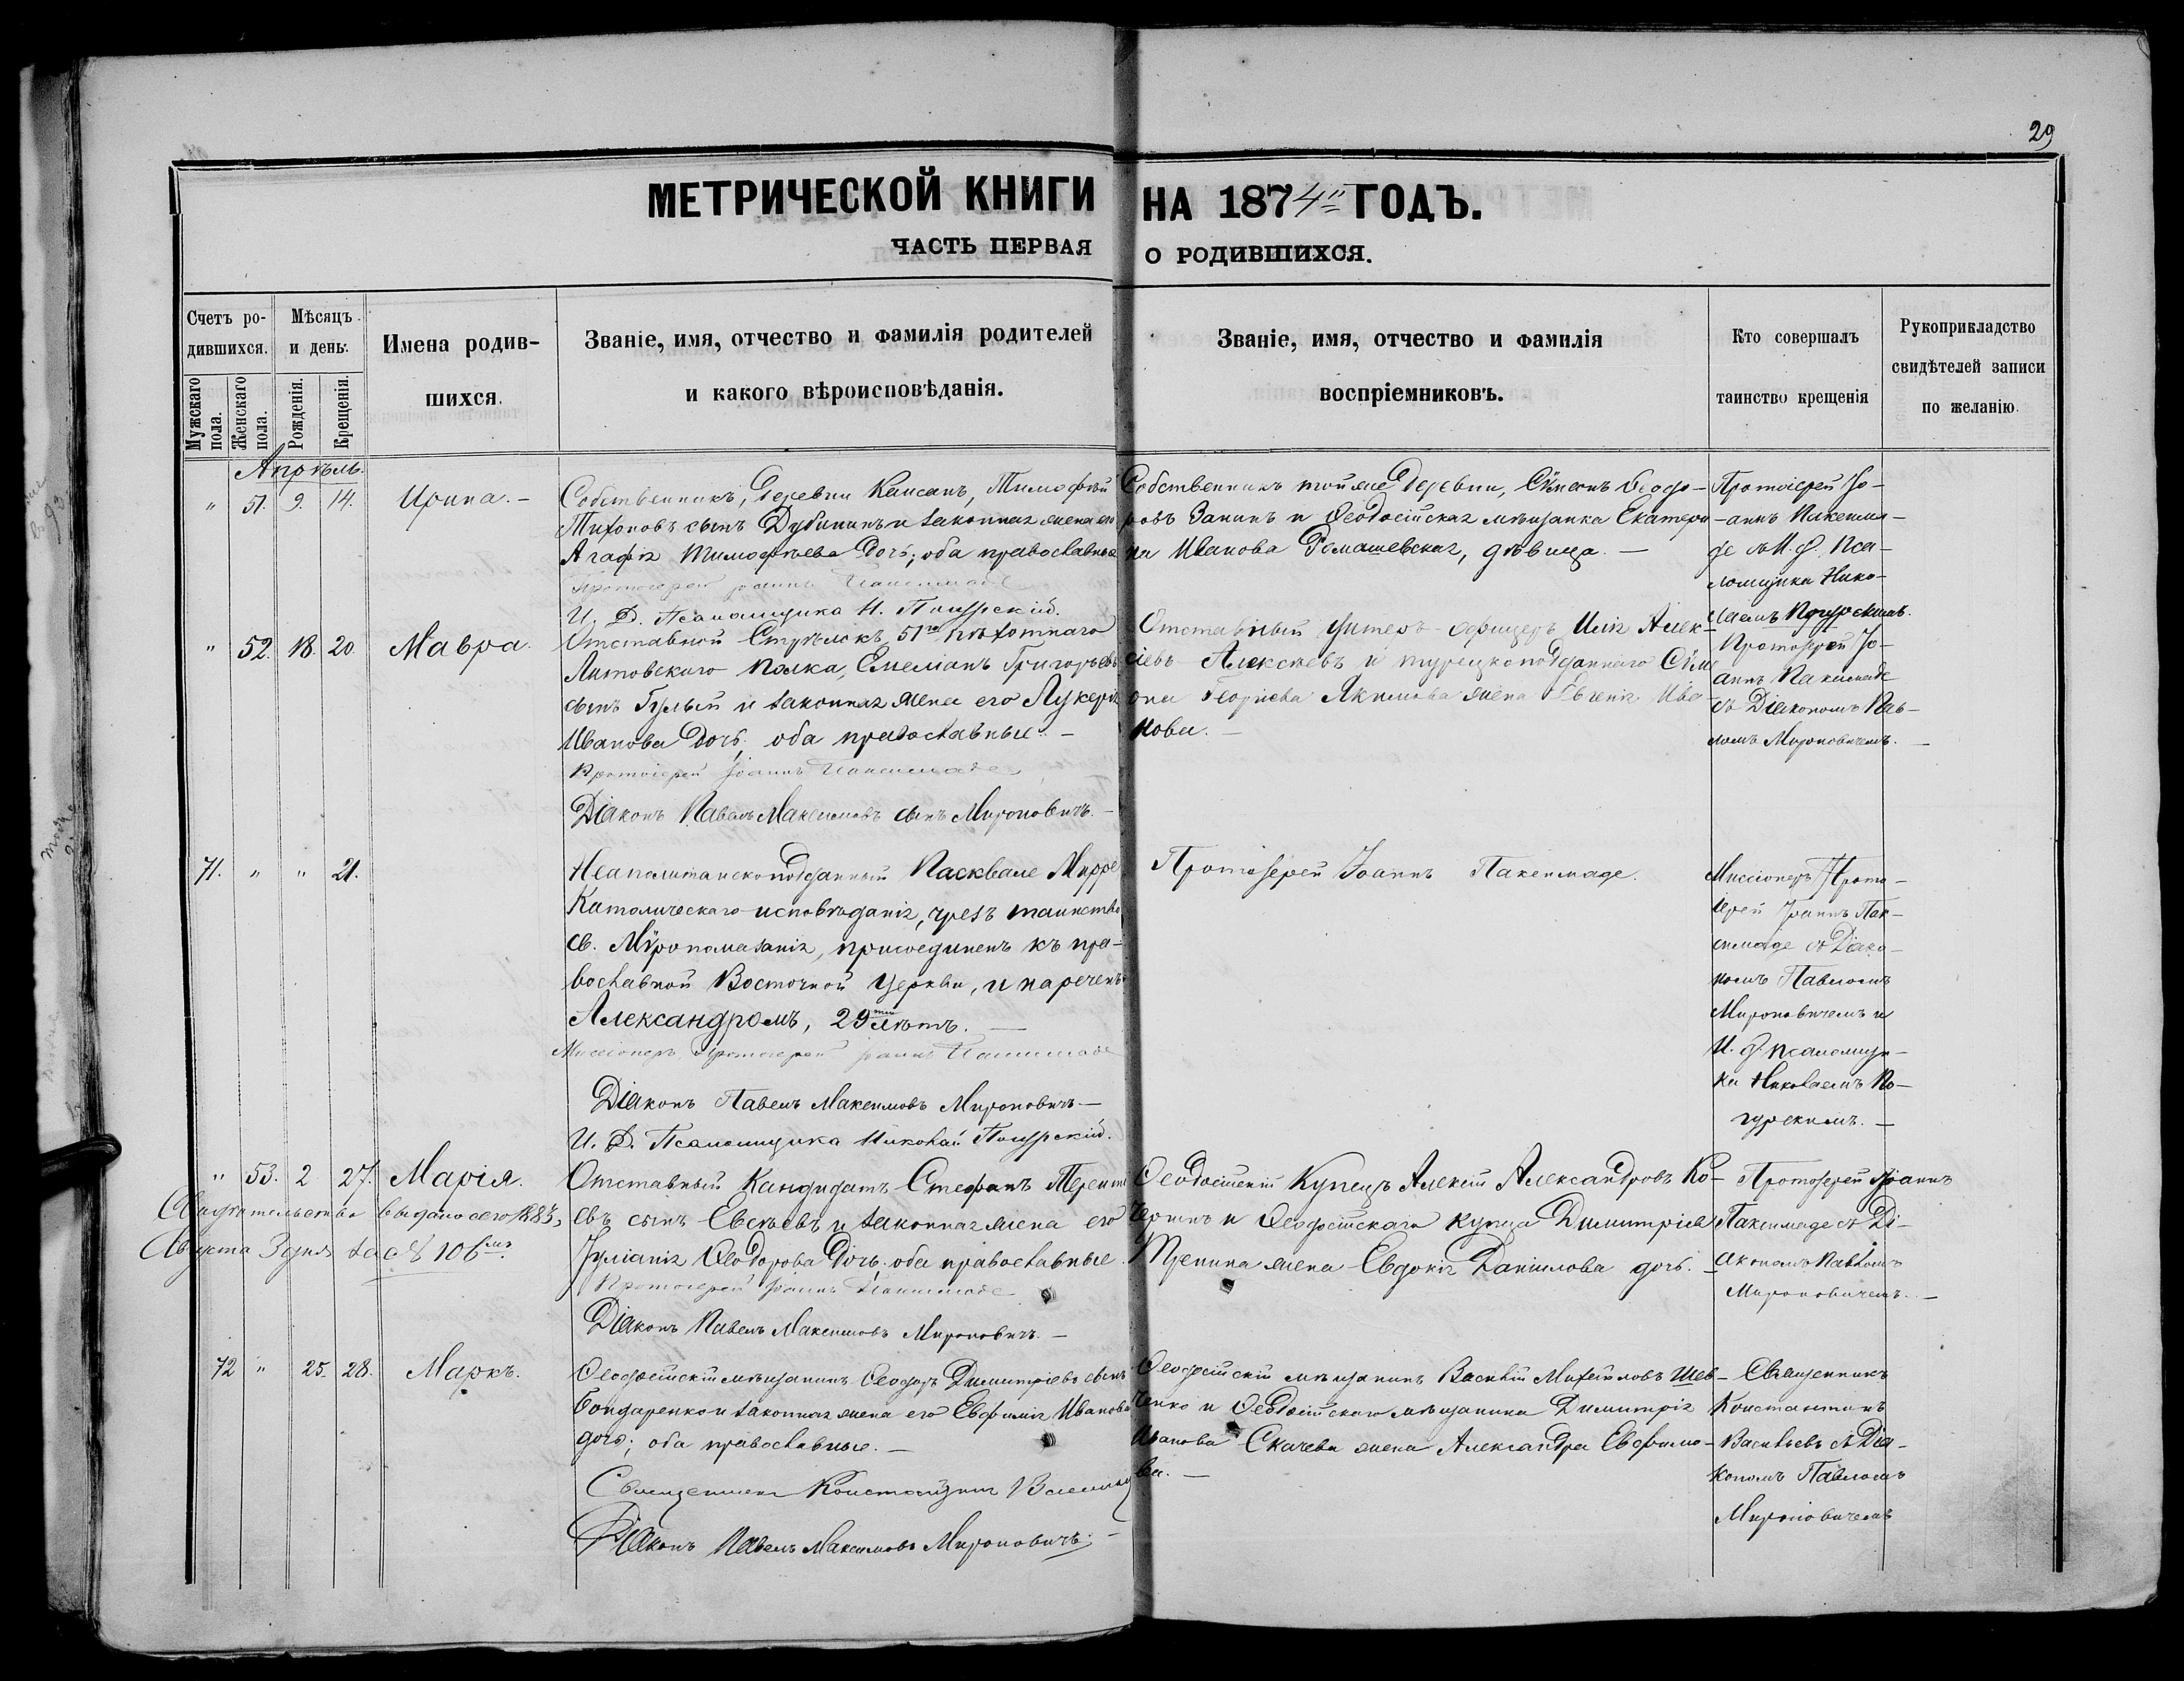 29
МЕТРИЧЕСКОЙ КНИГИ НА 1874 ГОДЪ.
ЧАСТЬ ПЕРВАЯ О РОДИВШИХСЯ.
Счетъ ро-
дившихся.
Мужскаго пола.
Женскаго пола.
Мѣсяцъ
и день.
Рожденія.
Крещенія.
Имена родив-
шихся.
Званіе, имя, отчество и фамилія родителей
и какого вѣроисповѣданія.
Званіе, имя, отчество и фамилія
воспріемниковъ.
Кто совершалъ
таинство крещенія
Рукоприкладство
свидѣтелей записи
по желанію.
Апрѣль.
" 51. 9. 14. Ирина. –
Собственникъ, деревни Тимофѣй
Тихоновъ сынъ Дубининъ и законная жена его
Агафія Тимофѣева дочь; оба православные
Протоіерей Іоаннъ Паксимаде
И. Д. Псаломщика Н. Погурскій.
Собственникъ тойже деревни, Сѵмеонъ Ѳеодо-
ровъ Занинъ и Ѳеодосійская мѣщанка Екатери-
на Иванова Ромашевская, дѣвица. –
Протоіерей Іо-
аннъ Паксима-
де съ И. д. Пса-
ломщика Нико-
лаемъ Погурскимъ.
" 52. 18. 20. Мавра.
Отставной Стрѣлокъ 51го пѣхотнаго
Литовскаго полка, Емеліанъ Григорьевъ
сынъ Гулый и законная жена его Лукерія
Иванова дочь, оба православные. –
Протоіерей Іоаннъ Паксимаде
Діаконъ Павелъ Максимовъ сынъ Мироновичъ. –
Отставный Унтеръ-офицеръ Илія Алек-
сіевъ Алексѣевъ и турецкоподданнаго Сѵме
она Георгіева Якимова жена Евгенія Ива-
нова. –
Протоіерей Іо-
аннъ Паксимаде
съ Діакономъ Пав-
ломъ Мироновичемъ. –
71. " " 21.
Неаполитанскоподданный Пасквале Мирре
Католическаго исповѣданія, чрезъ таинство
св. Мѵропомазанія, присоединенъ къ пра-
вославной Восточной Церкви, и нареченъ
Александромъ, 29ти лѣтъ. –
Миссіонеръ, Протоіерей Іоаннъ Паксимаде
Діаконъ Павелъ Максимовъ Мироновичъ –
И. Д. Псаломщика Николай Погурскій.
Протоіерей Іоаннъ Паксимаде.
Миссіонеръ Прото-
іерей Іоаннъ Пак-
симаде съ Діако-
номъ Павломъ
Мироновичемъ и
И. д. псаломщи-
ка Николаемъ По-
гурскимъ. –
" 53. 2 27. Марія.
Свидѣтельство выдано сего 1883,
Августа 3 дня за № 106
Отставный Кандидатъ Стефанъ Теренті
евъ сынъ Евсѣевъ и законная жена его
Іуліанія Ѳеодорова дочь, оба православные.
Протоіерей Іоаннъ Паксимаде
Діаконъ Павелъ Максимовъ Мироновичъ. –
Ѳеодосійскій Купецъ Алексій Александровъ Ко-
черинъ и Ѳеодосійскаго купца Димитрія
жена Евдокія Даніилова дочь. –
Протоіерей Іоаннъ
Паксимаде съ Ді-
акономъ Павломъ
Мироновичемъ. –
72 " 25. 28. Маркъ.
Ѳеодосійскій мѣщанинъ Ѳеодоръ Димитріевъ сынъ
Бондаренко и законная жена его Евфимія Иванова
дочь; оба православные. –
Священникъ Константинъ Васильевъ
Діаконъ Павелъ Максимовъ Мироновичъ. –
Ѳеодосійскій мѣщанинъ Василій Михайловъ Шев-
ченко и Ѳеодосійскаго мѣщанина Димитрія
Иванова Скачева жена Александра Евфимо-
ва. –
Священникъ
Константинъ
Васильевъ съ Діа-
кономъ Павломъ
Мироновичемъ